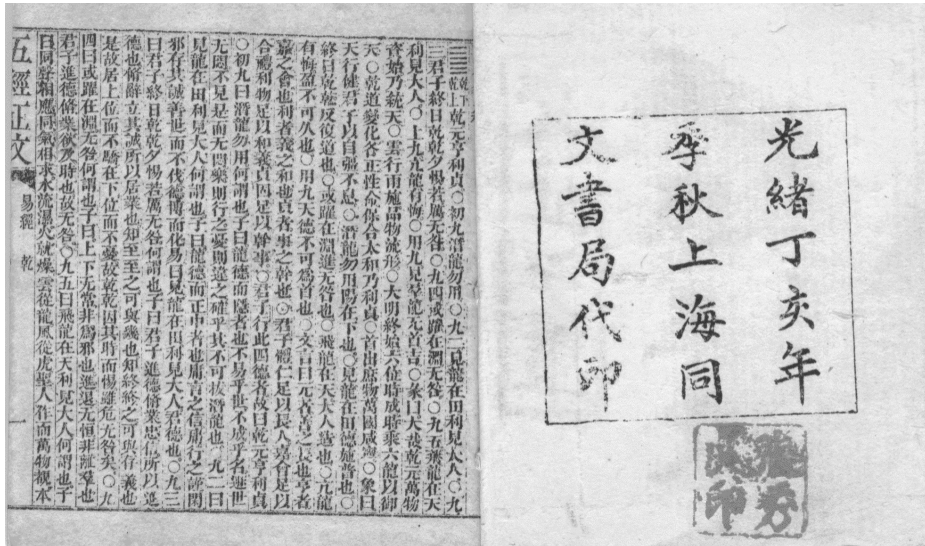 光緒丁亥年
季秋上海同
文書局代印
䷀乾下乾上乾元亨利貞○初九潛龍勿用○九二見龍在田利見大人○九
三君子終日乾乾夕惕若厲无咎○九四或躍在淵无咎○九五飛龍在天
利見大人○上九亢龍有悔○用九見羣龍无首吉○彖曰大哉乾元萬物
資始乃統天○雲行雨施品物流形○大明終始六位時成時乘六龍以御
天○乾道變化各正性命保合太和乃利貞○首出庶物萬國咸寧○象曰
天行健君子以自彊不息○潛龍勿用陽在下也○見龍在田德施普也○
終日乾乾反復道也○或躍在淵進无咎也○飛龍在天大人造也○亢龍
有悔盈不可久也○用九天德不可為首也○文言曰元者善之長也亨者
嘉之會也利者義之和也貞者事之幹也○君子體仁足以長人嘉會足以
合禮利物足以和義貞固足以幹事○君子行此四德者故曰乾元亨利貞
○初九曰潛龍勿用何謂也子曰龍德而隱者也不易乎世不成乎名遯世
无悶不見是而无悶樂則行之憂則違之確乎其不可拔潛龍也○九二曰
見龍在田利見大人何謂也子曰龍德而正中者也庸言之信庸行之謹閑
邪存其誠善世而不伐德博而化易曰見龍在田利見大人君德也○九三
曰君子終日乾乾夕惕若厲无咎何謂也子曰君子進德脩業忠信所以進
德也脩辭立其誠所以居業也知至至之可與幾也知終終之可與存義也
是故居上位而不驕在下位而不憂故乾乾因其時而惕雖危无咎矣○九
四曰或躍在淵无咎何謂也子曰上下无常非為邪也進退无恆非離羣也
君子進德脩業欲及時也故无咎○九五曰飛龍在天利見大人何謂也子
曰同聲相應同氣相求水流濕火就燥雲從龍風從虎聖人作而萬物覩本
五經正文 易經 乾 一